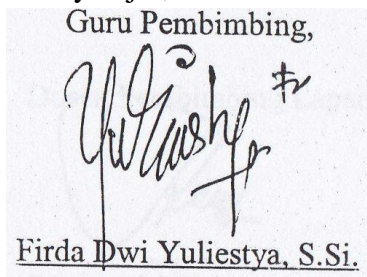 Guru Pembimbing,
Firda Dwi Yuliestya, S.Si.